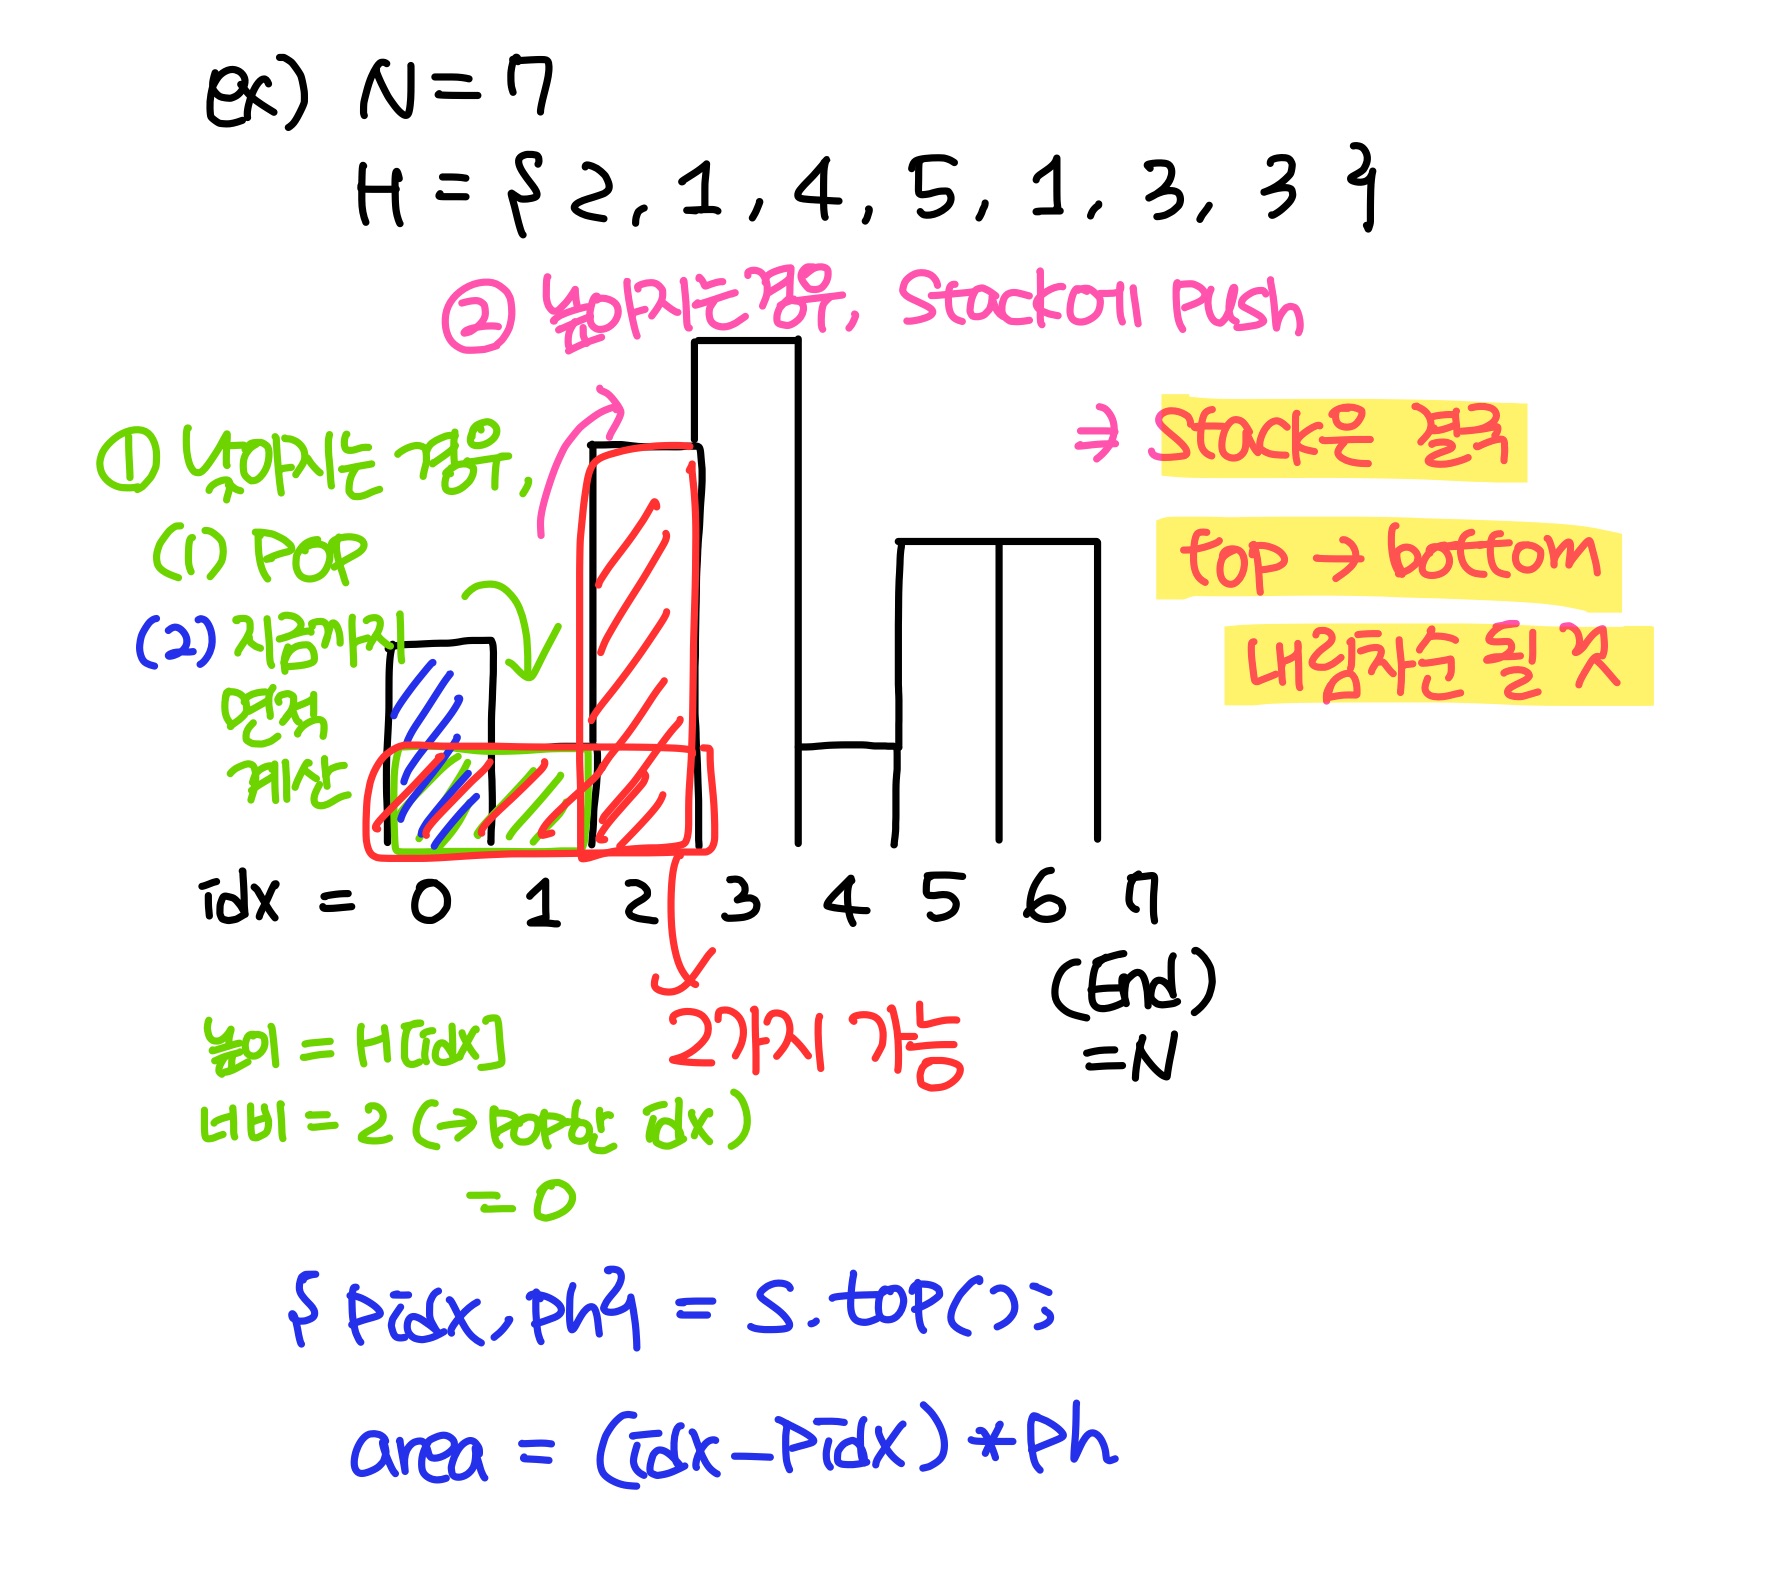 ex) N = 7
H = { 2, 1, 4, 5, 1, 3, 3 }
② 높아지는경우, Stack에 push
① 낮아지는 경우,
(1) POP
(2) 지금까지
면적
계산
⇒ Stack은 결국
top → bottom
내림차순 될 것
idx = 0 1 2 3 4 5 6 7
(End)
= N
2가지 가능
높이 = H[idx]
너비 = 2 (→ POP한 idx)
= 0
{ Pidx, Ph} = S.top();
area = (idx - Pidx) * Ph